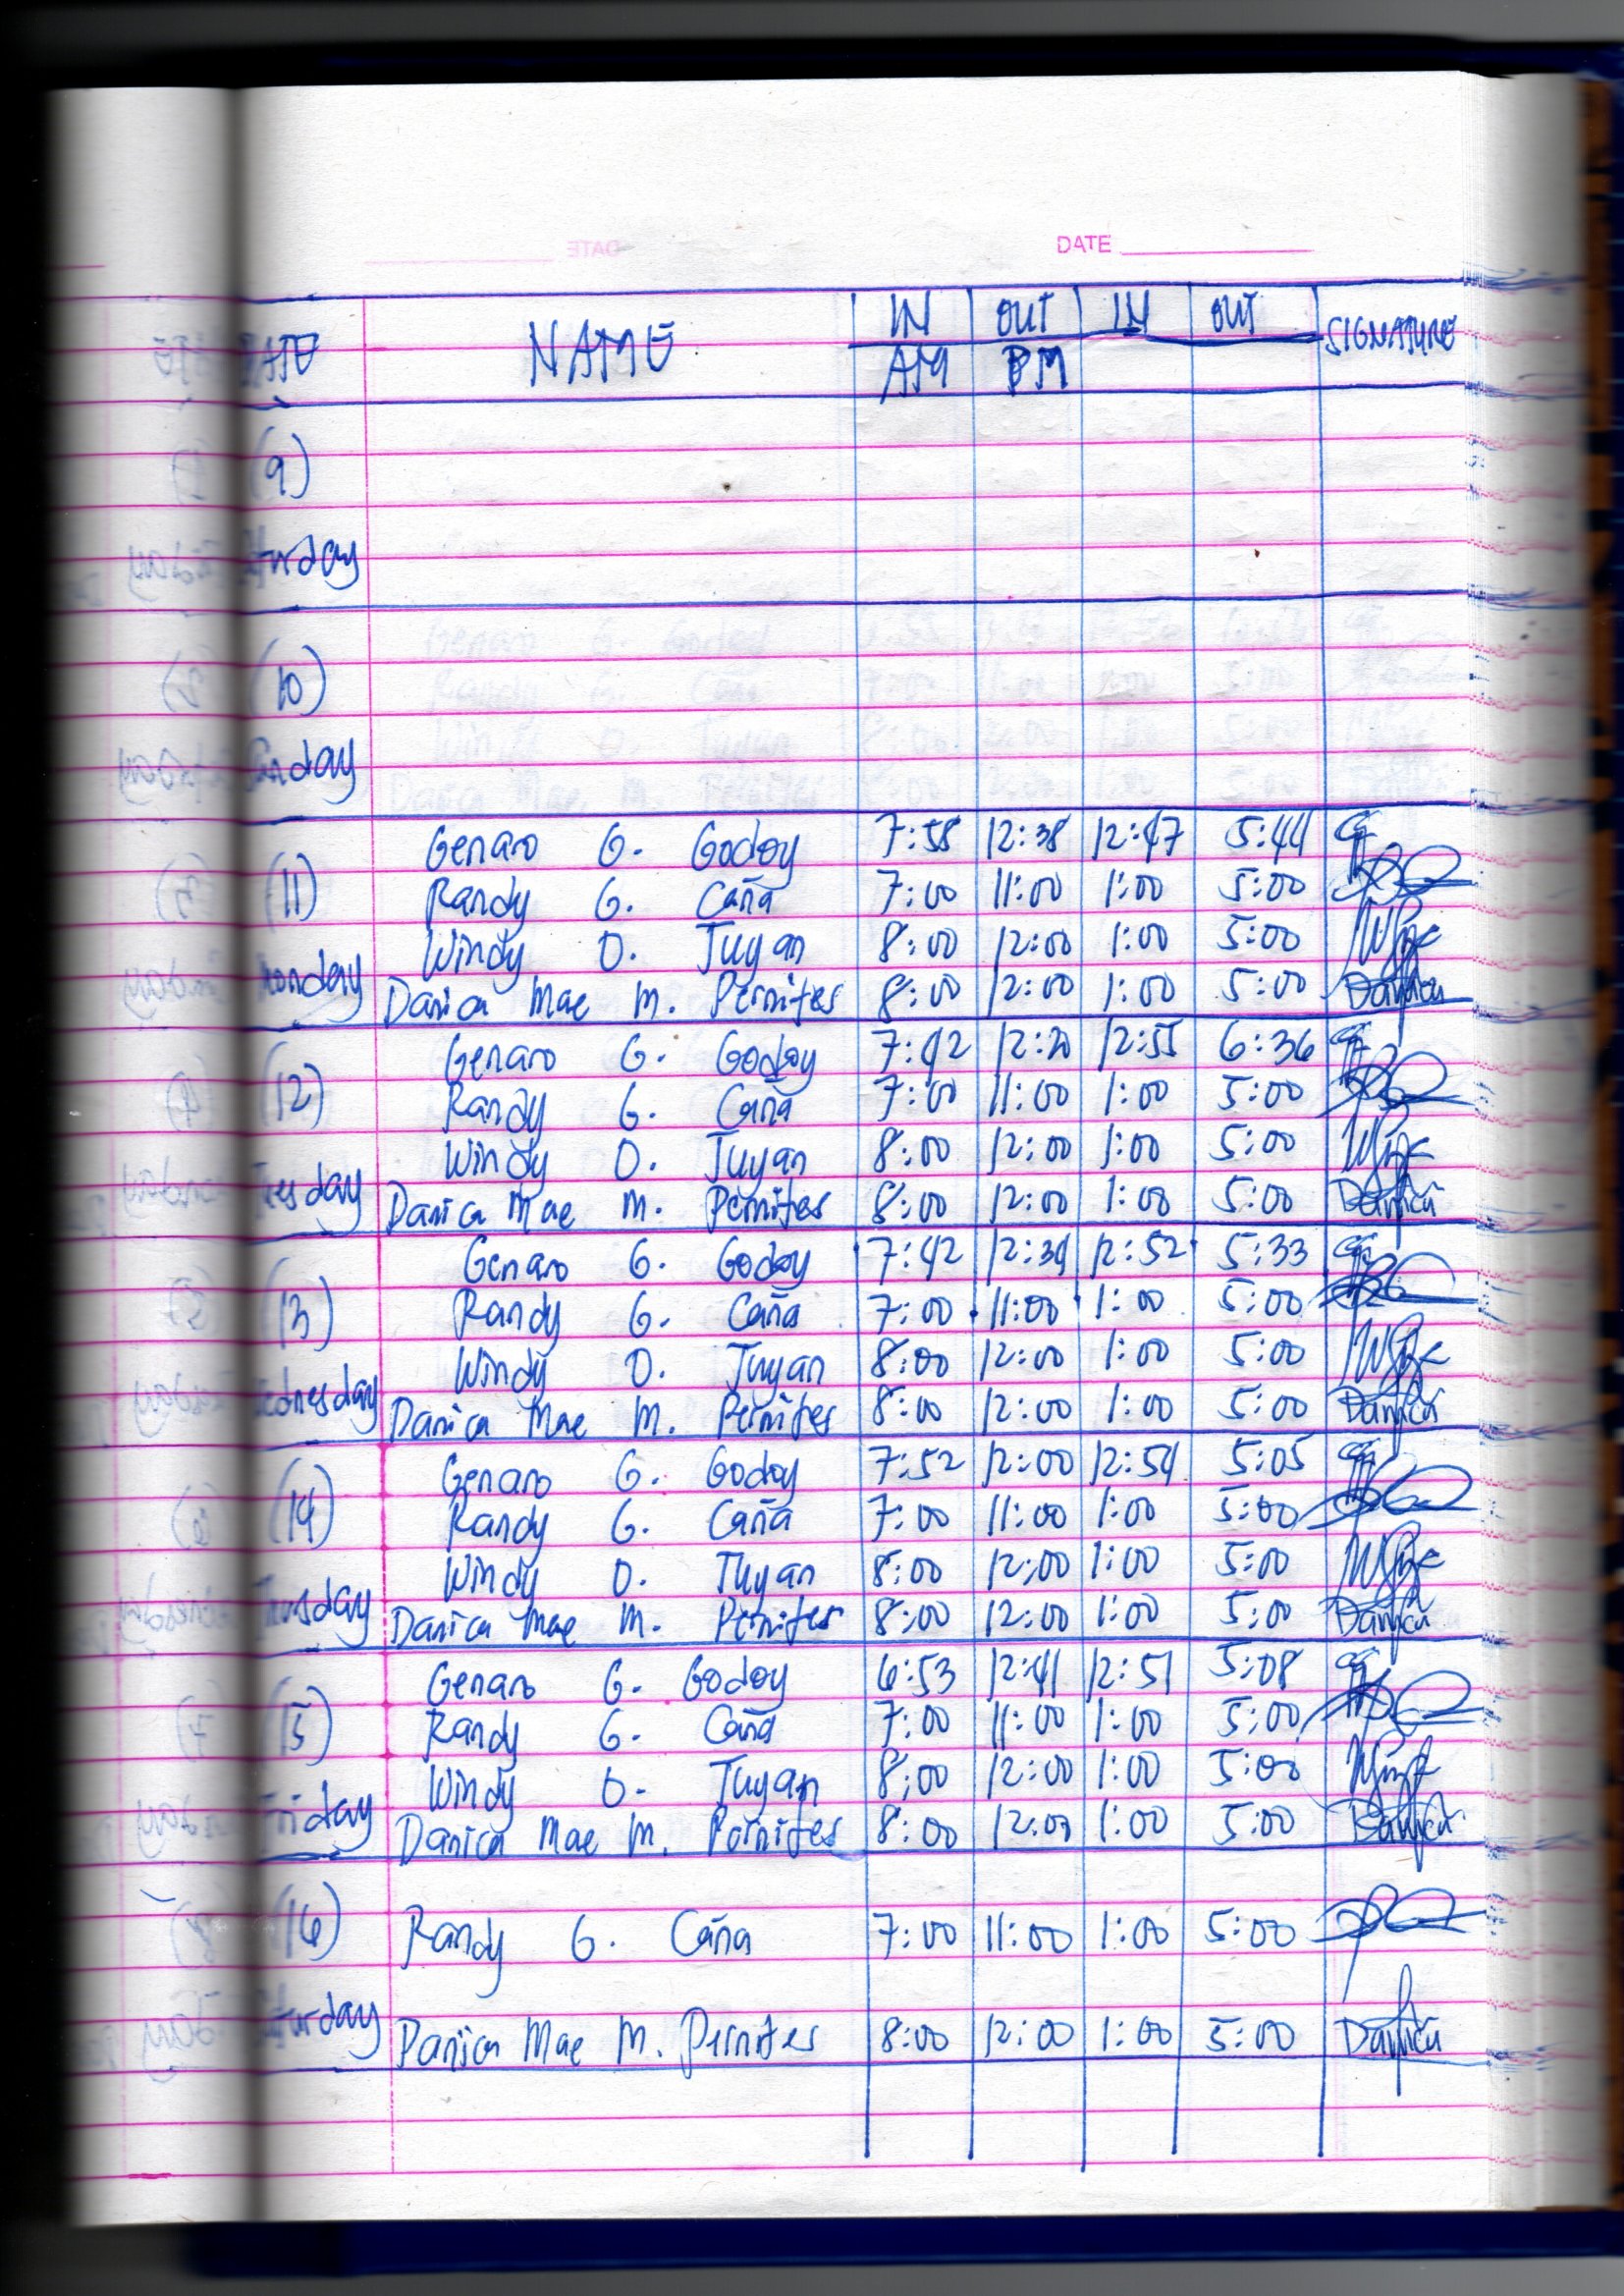 DATE
DATE NAME IN OUT IN OUT SIGNATURE
AM PM
(9)
(10)
Genaro G. Godoy 7:58 12:38 12:47 5:44
(11) Randy G. Caña 7:00 11:00 1:00 5:00
Windy O. Tuyan 8:00 12:00 1:00 5:00
Monday Danica Mae M. Pernites 8:00 12:00 1:00 5:00 Danica
Genaro G. Godoy 7:42 12:20 12:55 6:36
(12) Randy G. Caña 7:00 11:00 1:00 5:00
Windy O. Tuyan 8:00 12:00 1:00 5:00
Tuesday Danica Mae M. Pernites 8:00 12:00 1:00 5:00 Danica
Genaro G. Godoy 7:42 12:34 12:52 5:33
(13) Randy G. Caña 7:00 11:00 1:00 5:00
Windy O. Tuyan 8:00 12:00 1:00 5:00
Wednesday Danica Mae M. Pernites 8:00 12:00 1:00 5:00 Danica
Genaro G. Godoy 7:52 12:00 12:54 5:05
(14) Randy G. Caña 7:00 11:00 1:00 5:00
Windy O. Tuyan 8:00 12:00 1:00 5:00
Danica Mae M. Pernites 8:00 12:00 1:00 5:00 Danica
Genaro G. Godoy 6:53 12:41 12:51 5:08
(15) Randy G. Caña 7:00 11:00 1:00 5:00
Windy O. Tuyan 8:00 12:00 1:00 5:00
Friday Danica Mae M. Pernites 8:00 12:00 1:00 5:00 Danica
(16) Randy G. Caña 7:00 11:00 1:00 5:00
Danica Mae M. Pernites 8:00 12:00 1:00 5:00 Danica